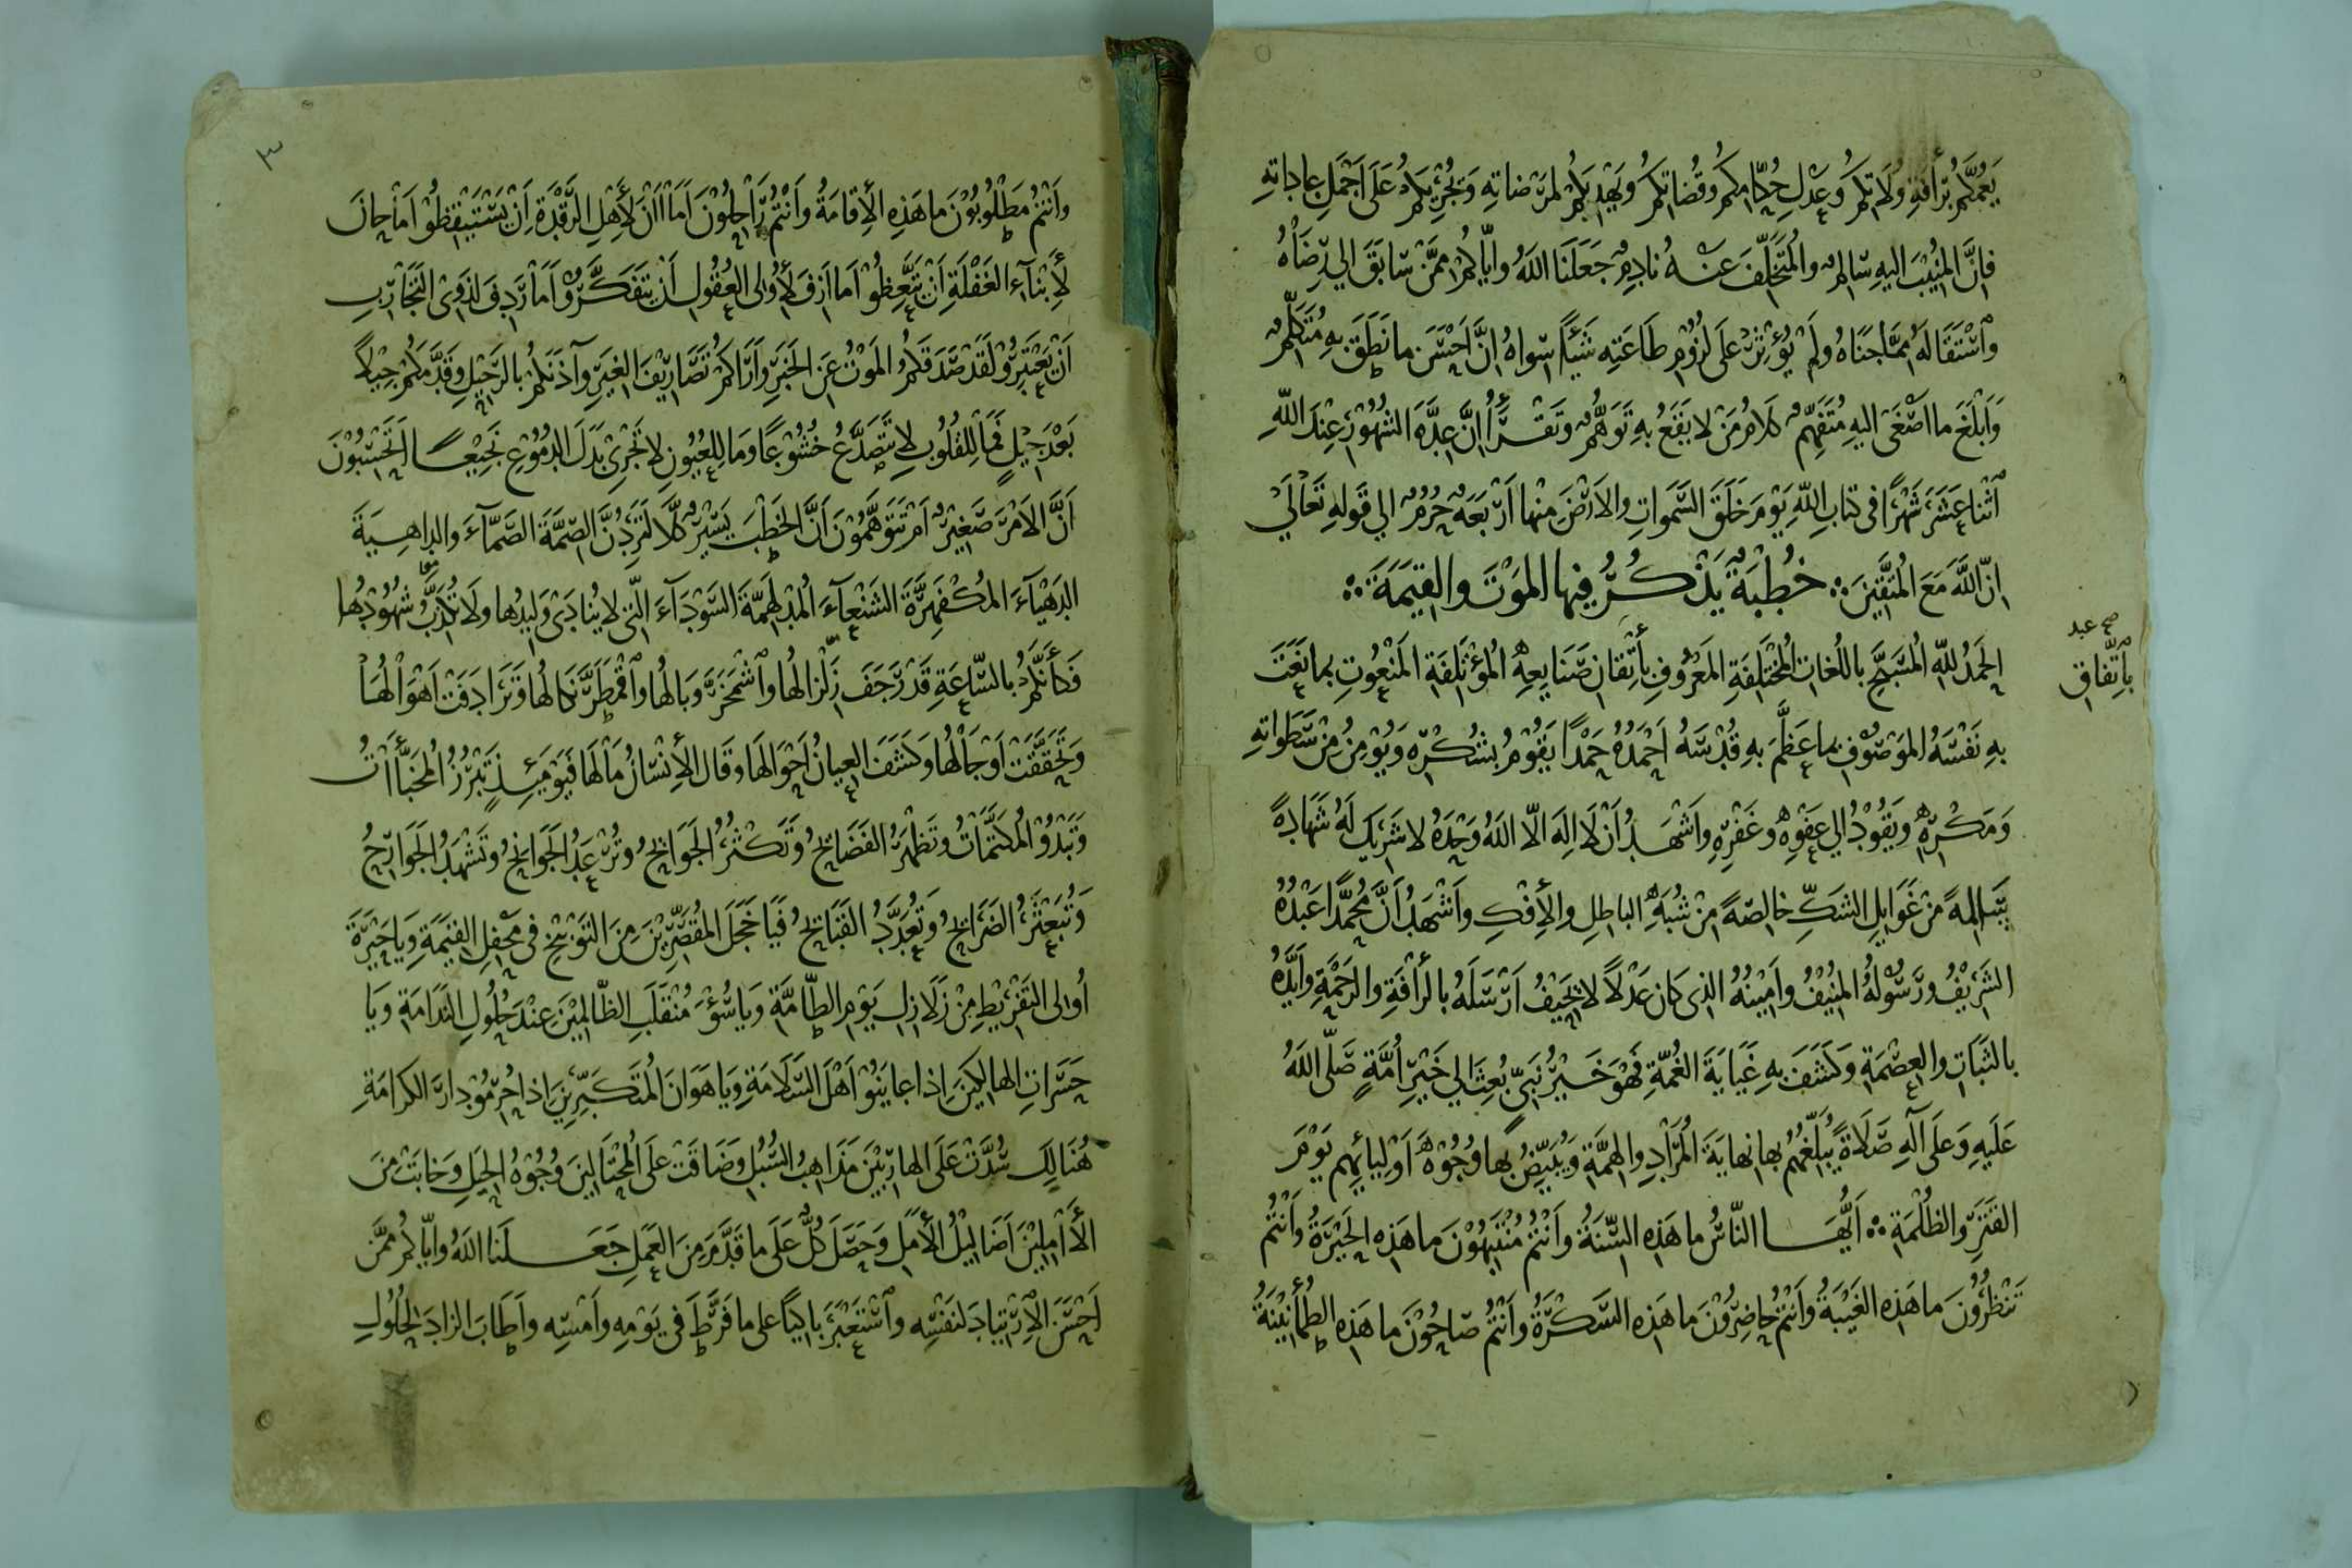 يَعُمَّكُمْ بِرَأْفَةِ وُلَاتِكُمْ وَعَدْلِ حُكَّامِكُمْ وَقُضَاتِكُمْ وَيَهْدِيَكُمْ لِمَرْضَاتِهِ وَيُجْرِيَكُمْ عَلَى أَجْمَلِ عَادَاتِهِ
فَإِنَّ الْمُنِيْبَ إِلَيْهِ سَالِمٌ وَالْمُتَخَلِّفَ عَنْهُ نَادِمٌ جَعَلَنَا اللهُ وَإِيَّاكُمْ مِمَّنْ سَابَقَ إِلَى رِضَاهُ
وَاسْتَقَالَهُ مِمَّا جَنَاهُ وَلَمْ يُؤْثِرْ عَلَى لُزُوْمِ طَاعَتِهِ شَيْئًا سِوَاهُ إِنَّ أَحْسَنَ مَا نَطَقَ بِهِ مُتَكَلِّمٌ
وَأَبْلَغَ مَا أَصْغَى إِلَيْهِ مُتَفَهِّمٌ كَلَامُ مَنْ لَا يَقَعُ بِهِ تَوَهُّمٌ وَتَقْرَأُ إِنَّ عِدَّةَ الشُّهُوْرِ عِنْدَ اللهِ
اثْنَا عَشَرَ شَهْرًا فِي كِتَابِ اللهِ يَوْمَ خَلَقَ السَّمَوَاتِ وَالْأَرْضَ مِنْهَا أَرْبَعَةٌ حُرُمٌ إِلَى قَوْلِهِ تَعَالَى
إِنَّ اللهَ مَعَ الْمُتَّقِيْنَ ؞ خُطْبَةٌ يَذْكُرُ فِيهَا الْمَوْتَ وَالْقِيَمَةَ ؞
الْحَمْدُ لِلَّهِ الْمُسَبَّحِ بِاللُّغَاتِ الْمُخْتَلِفَةِ الْمَعْرُوفِ بِأِتْقَانِ صَنَايِعِهِ الْمُؤْتَلِفَةِ الْمَنْعُوتِ بِمَا نَعَتَ
صح عبد
بِاتِّفَاقِ
بِهِ نَفْسَهُ الْمَوْصُوْفِ بِمَا عَظَّمَ بِهِ قُدْسَهُ أَحْمَدُهُ حَمْدًا يَقُوْمُ بِشُكْرِهِ وَيُوْمِنُ مِنْ سَطَوَاتِهِ
وَمَكْرِهِ وَيَقُوْدُ إِلَى عَفْوِهِ وَغَفْرِهِ وَأَشْهَدُ أَنْ لَا إِلَهَ إِلَّا اللهُ وَحْدَهُ لَا شَرِيكَ لَهُ شَهَادَةً
سَالِمَةً مِنْ غَوَايِلِ الشَّكِّ خَالِصَةً مِنْ شُبَهِ الْبَاطِلِ وَالْإِفْكِ وَأَشْهَدُ أَنَّ مُحَمَّدًا عَبْدُهُ
الشَّرِيْفُ وَرَسُوْلُهُ الْمُنِيْفُ وَأَمِيْنُهُ الَّذِي كَانَ عَدْلًا لَا يَحِيْفُ أَرْسَلَهُ بِالرَّأْفَةِ وَالرَّحْمَةِ وَأَيَّدَهُ
بِالثَّبَاتِ وَالْعِصْمَةِ وَكَشَفَ بِهِ غَيَايَةَ الْغُمَّةِ فَهُوَ خَيْرُ نَبِيٍّ بُعِثَ إِلَى خَيْرِ أُمَّةٍ صَلَّى اللهُ
عَلَيْهِ وَعَلَى آلِهِ صَلَاةً يُبَلِّغُهُمْ بِهَا نِهَايَةَ الْمُرَادِ وَالْهِمَّةِ وَيُبَيِّضُ بِهَا وُجُوْهَ أَوْلِيَائِهِم يَوْمَ
الْقَتَرِ وَالظُّلْمَةِ ؞ أَيُّهَا النَّاسُ مَا هَذِهِ السِّنَةُ وَأَنْتُمْ مُنْتَبِهُوْنَ مَا هَذِهِ الْحَيْرَةُ وَأَنْتُمْ
تَنْظُرُونَ مَا هَذِهِ الْغَيْبَةُ وَأَنْتُمْ حَاضِرُوْنَ مَا هَذِهِ السَّكْرَةُ وَأَنْتُمْ صَاحُوْنَ مَا هَذِهِ الطُّمَأْنِيْنَةُ
٣
وَأَنْتُمْ مَطْلُوبُوْنَ مَا هَذِهِ الْأِقَامَةُ وَأَنْتُمْ رَاحِلُونَ أَمَا آنَ لِأَهْلِ الرَّقْدَةِ أَنْ يَسْتَيْقِظُوْا أَمَا حَانَ
لِأَبْنَآءِ الْغَفْلَةِ أَنْ يَتَّعِظُوْا أَمَا أَزِفَ لِأُولِى الْعُقُولِ أَنْ يَتَفَكَّرُوْا أَمَا رَدِفَ لِذَوِى التَّجَارِبِ
أَنْ يَعْتَبِرُوْا لَقَدْ صَدَقَكُمُ الْمَوْتُ عَنِ الْخَبَرِ وَأَرَاكُمْ تَصَارِيْفَ الْغِيَرِ وَآذَنَكُمْ بِالرَّحِيْلِ وَقَدَّمَكُمْ جِيْلًا
بَعْدَ جِيْلٍ فَمَا لِلْقُلُوْبِ لَا تَتَصَدَّعُ خُشُوْعًا وَمَا لِلْعُيُوْنِ لَا تَجْرِىْ بَدَلَ الدُّمُوْعِ نَجِيْعًا أَتَحْسَبُوْنَ
أَنَّ الْأَمْرَ صَغِيْرٌ أَمْ تَتَوَهَّمُوْنَ أَنَّ الْخَطْبَ يَسِيْرٌ كَلَّا لَتَرِدُنَّ الصِّمَّةَ الصَّمَّآءَ وَالدَّاهِيَةَ
الدَّهْيَآءَ الْمُكْفَهِرَّةَ الشَّنْعَآءَ الْمُدْلَهِمَّةَ السَّوْدَآءَ الَّتِى لَا يُنَادَى وَلِيدُهَا وَلَا تُكَذَّبُ شُهُوْدُهَا
فَكَأَنَّكُمْ بِالسَّاعَةِ قَدْ رَجَفَ زِلْزَالُهَا وَاشْمَخَرَّ وَبَالُهَا وَاقْمَطَرَّ نَكَالُهَا وَتَرَادَفَتْ أَهْوَالُهَا
وَتَحَقَّقَتْ أَوْجَالُهَا وَكَشَفَ الْعِيَانُ أَحْوَالَهَا وَقَالَ الْأِنْسَانُ مَالَهَا فَيَوْمَئِذٍ تَبْرُزُ الْمُخَبَّآتُ
وَتَبْدُوْ الْمُكَتَّمَاتُ وَتَظْهَرُ الْفَضَايِحُ وَتَكْثُرُ الْجَوَايِحُ وَتُرْعَدُ الْجَوَانِحُ وَتَشْهَدُ الْجَوَارِحُ
وَتُبَعْثَرُ الضَّرَايِحُ وَتُعَدَّدُ الْقَبَايِحُ فَيَا خَجَلَ الْمُقَصِّرِيْنَ مِنَ التَّوْبِيْخِ فِى مَحْفِلِ الْقِيَمَةِ وَيَا حَيْرَةَ
أُولِى التَّفْرِيْطِ مِنْ زَلَازِلِ يَوْمِ الطَّامَّةِ وَيَا سُوْءَ مُنْقَلَبِ الظَّالِمِيْنَ عِنْدَ حُلُولِ النَّدَامَةِ وَيَا
حَسَرَاتِ الْهَالِكِيْنَ إِذَا عَايَنُوْا أَهْلَ السَّلَامَةِ وَيَا هَوَانَ الْمُتَكَبِّرِيْنَ إِذَا حُرِمُوْ دَارَ الْكَرَامَةِ
هُنَالِكَ سُدَّتْ عَلَى الْهَارِبِيْنَ مَذَاهِبُ السُّبُلِ وَضَاقَتْ عَلَى الْمُحْتَالِيْنَ وُجُوْهُ الْحِيَلِ وَخَابَتْ مِنَ
الْأَمِلِيْنَ أَضَالِيْلُ الْأَمَلِ وَحَصَلَ كُلٌّ عَلَى مَا قَدَّمَ مِنَ الْعَمَلِ جَعَلَنَا اللهُ وَإِيَّاكُمْ مِمَّنْ
أَحْسَنَ الْاِرْتِيَادَ لِنَفْسِهِ وَاسْتَعْبَرَ بَاكِيًا عَلَى مَا فَرَّطَ فِى يَوْمِهِ وَأَمْسِهِ وَأَطَابَ الزَّادَ لِحُلُولِ